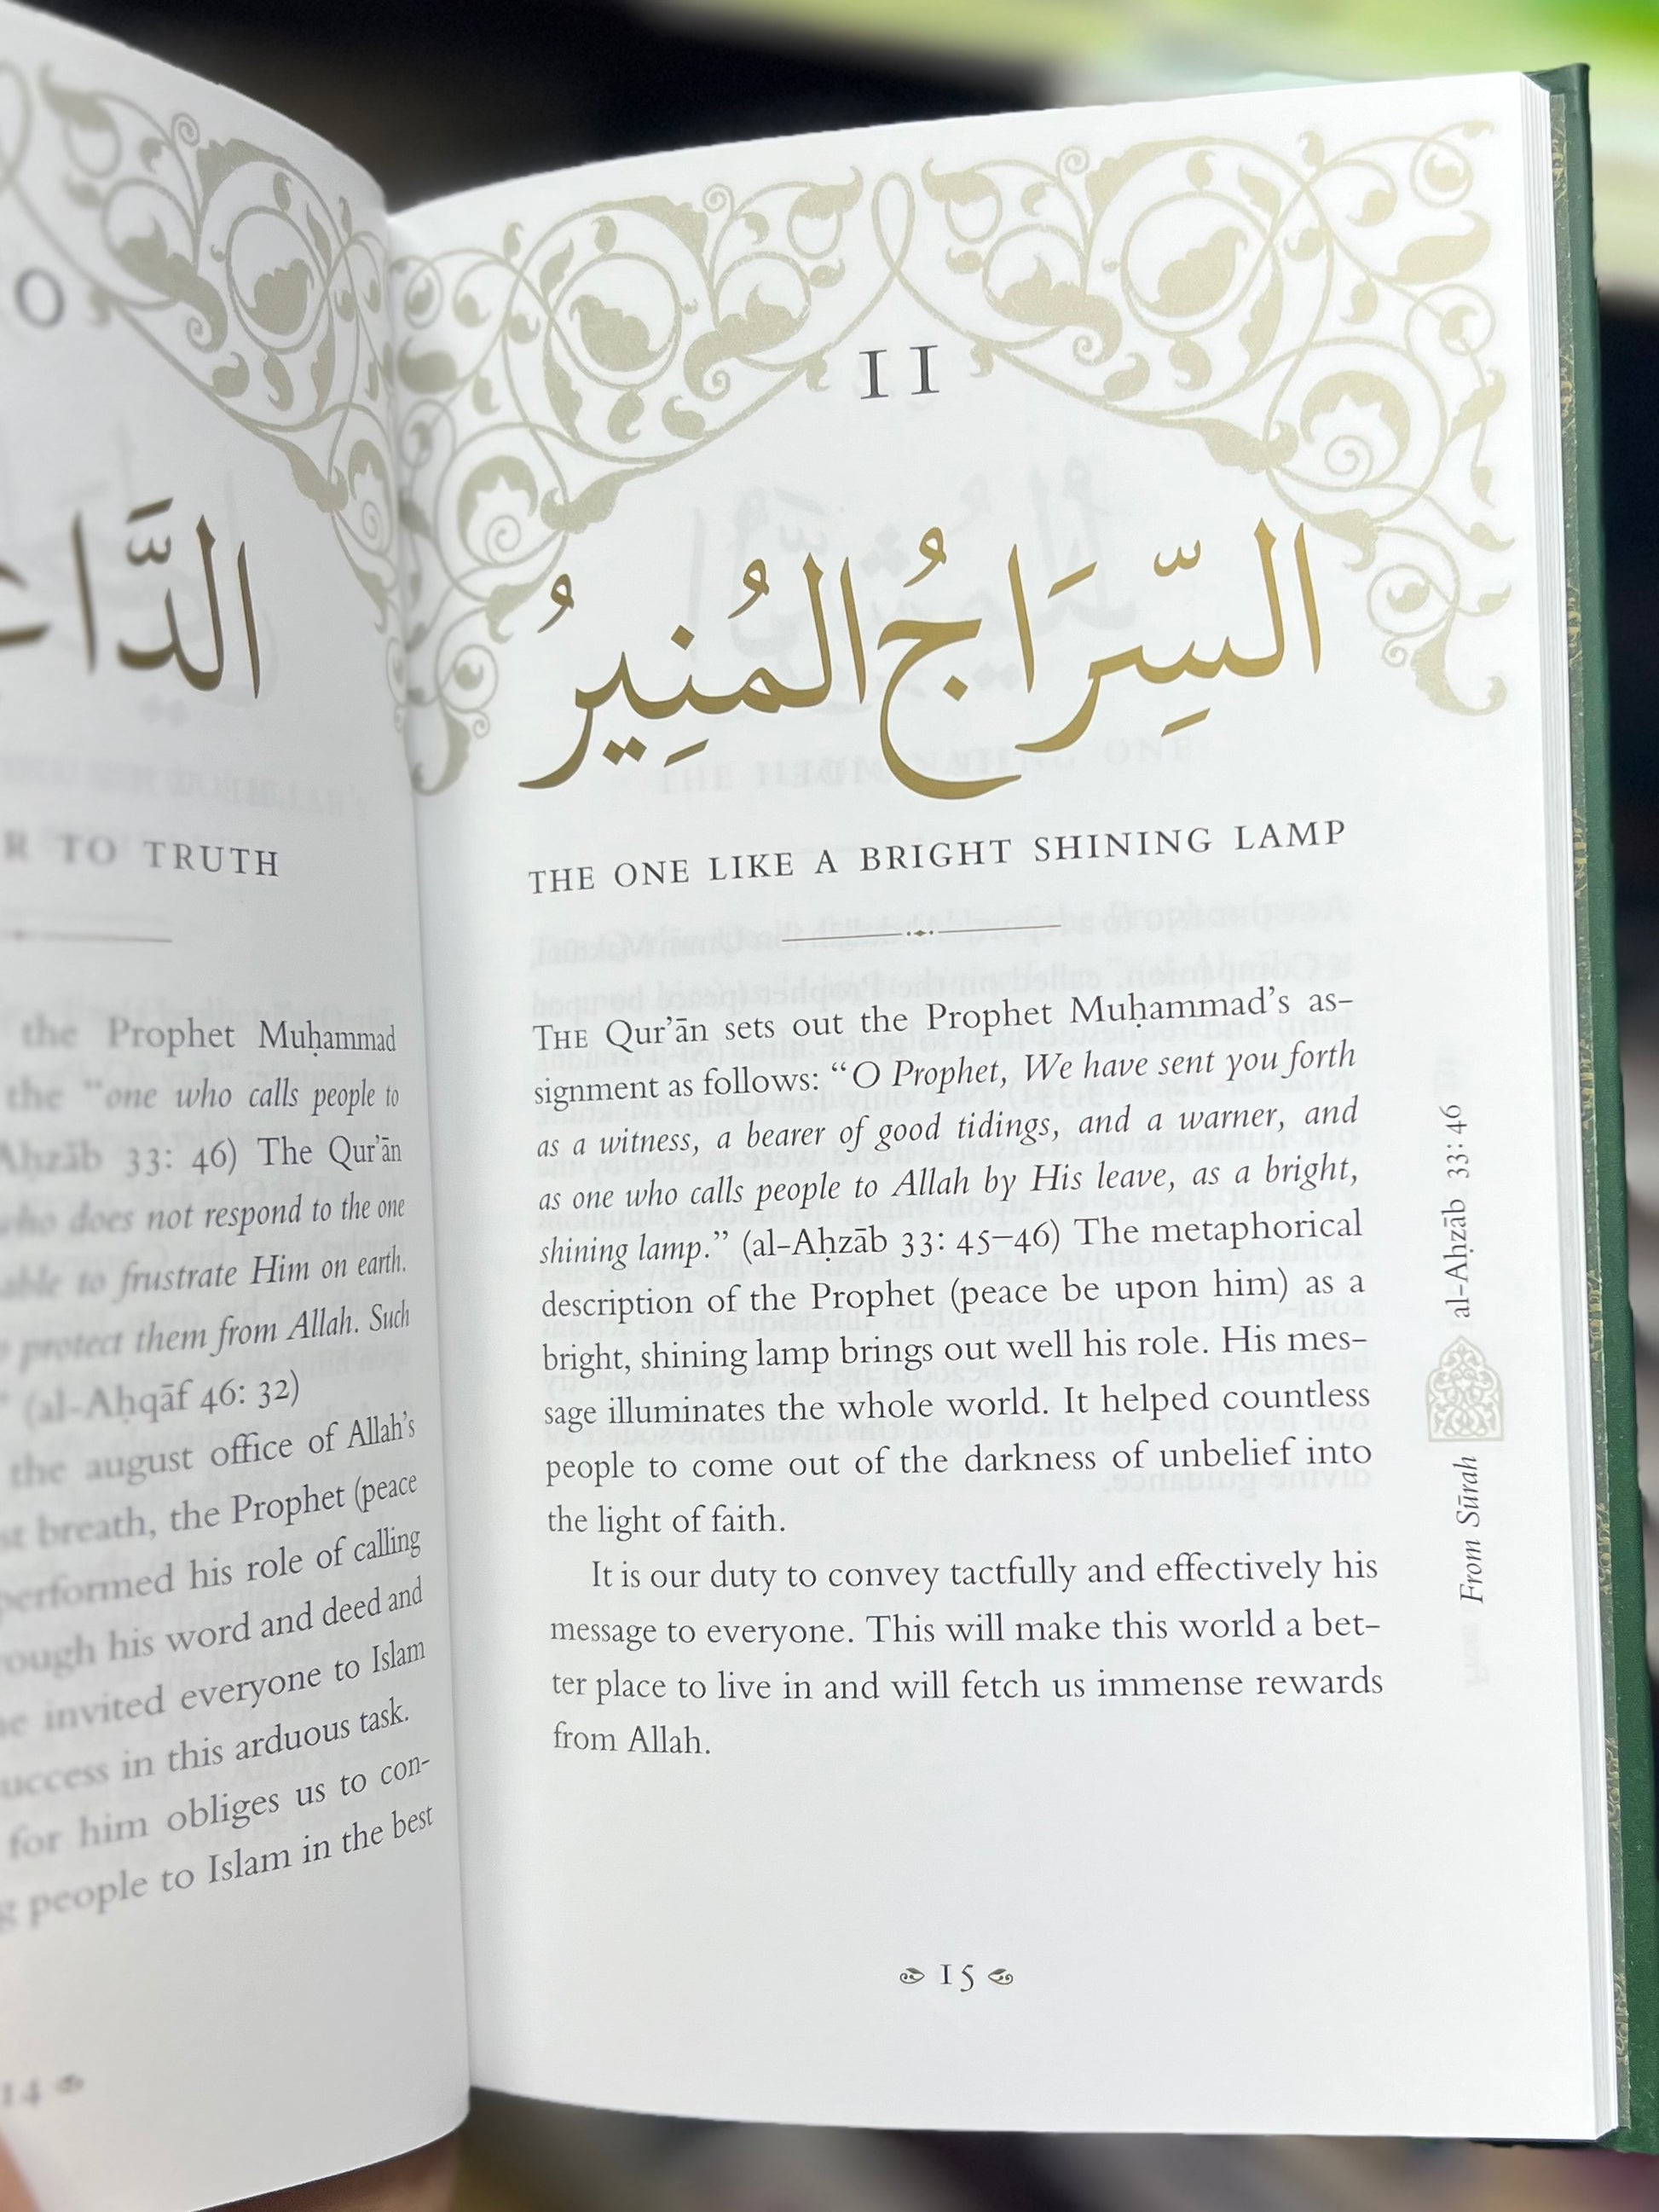 O
الدَّاعِ
R TO TRUTH
the Prophet Muḥammad
the “one who calls people to
Aḥzāb 33: 46) The Qur’ān
who does not respond to the one
able to frustrate Him on earth.
protect them from Allah. Such
” (al-Aḥqāf 46: 32)
the august office of Allah’s
st breath, the Prophet (peace
performed his role of calling
rough his word and deed and
he invited everyone to Islam
uccess in this arduous task.
for him obliges us to con-
g people to Islam in the best
14
11
السِّرَاجُ المُنِيرُ
THE ONE LIKE A BRIGHT SHINING LAMP
THE Qur’ān sets out the Prophet Muḥammad’s as-
signment as follows: “O Prophet, We have sent you forth
as a witness, a bearer of good tidings, and a warner, and
as one who calls people to Allah by His leave, as a bright,
shining lamp.” (al-Aḥzāb 33: 45–46) The metaphorical
description of the Prophet (peace be upon him) as a
bright, shining lamp brings out well his role. His mes-
sage illuminates the whole world. It helped countless
people to come out of the darkness of unbelief into
the light of faith.
It is our duty to convey tactfully and effectively his
message to everyone. This will make this world a bet-
ter place to live in and will fetch us immense rewards
from Allah.
From Sūrah al-Aḥzāb 33: 46
15